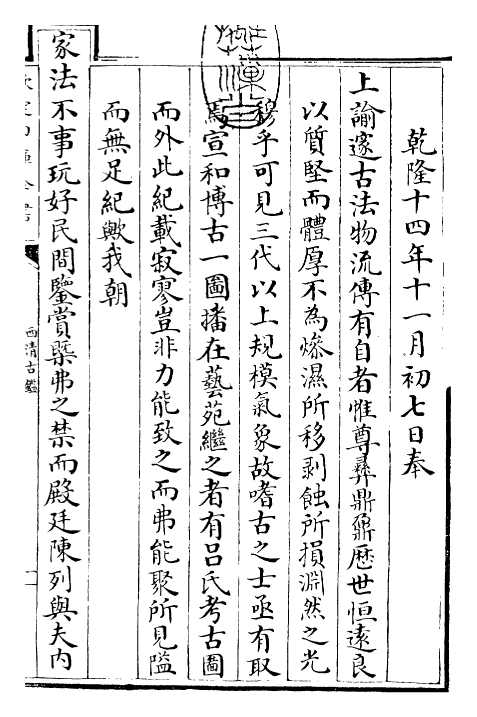 乾隆十四年十一月初七日奉
上諭邃古法物流傳有自者惟尊彝鼎鼐歷世恒遠良
以質堅而體厚不為燥濕所移剥蝕所損淵然之光
穆乎可見三代以上規模氣象故嗜古之士亟有取
焉宣和博古一圖播在藝苑繼之者有吕氏考古圖
而外此紀載寂寥豈非力能致之而弗能聚所見隘
而無足紀歟我朝
家法不事玩好民間鑒賞槩弗之禁而殿廷陳列與夫内
欽定四庫全書
西清古鑑
一